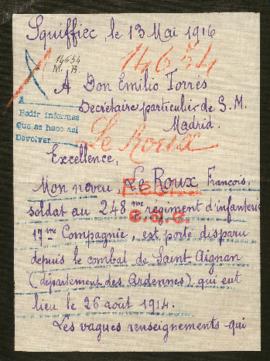 Squiffiec le 13 Mai 1916
14654
14654
M. B.
A Don Emilio Torrés
Secrétaire particulier de S.M.
Madrid.
A
Pedir informes
Que se haga así
Devolver
Le Roux
Excellence,
Mon neveu Le Roux François,
soldat au 248me régiment d'infanterie
17me Compagnie, est porté disparu
depuis le combat de Saint Aignan
(département des Ardennes), qui eut
lieu le 26 août 1914.
Les vagues renseignements qui